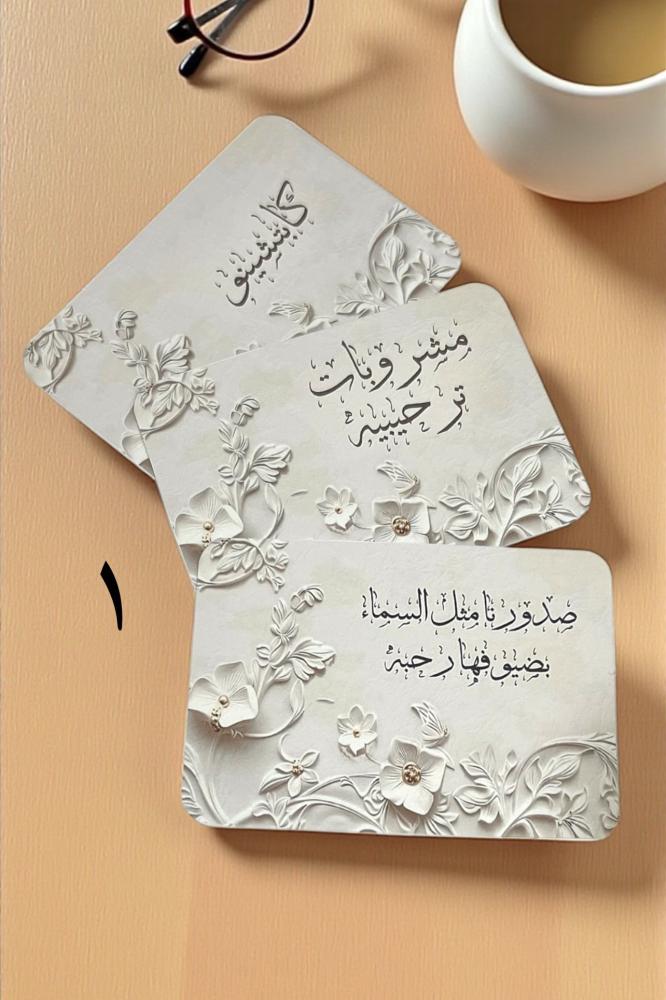 كابتشينو
مشروبات
ترحيبيه
١
صدورنا مثل السماء
بضيوفها رحبه